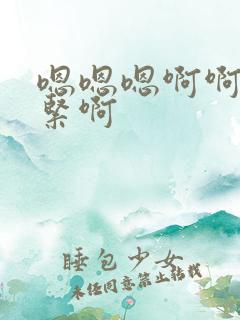 嗯嗯嗯啊啊
緊啊
睡包少女
未经同意禁止转载